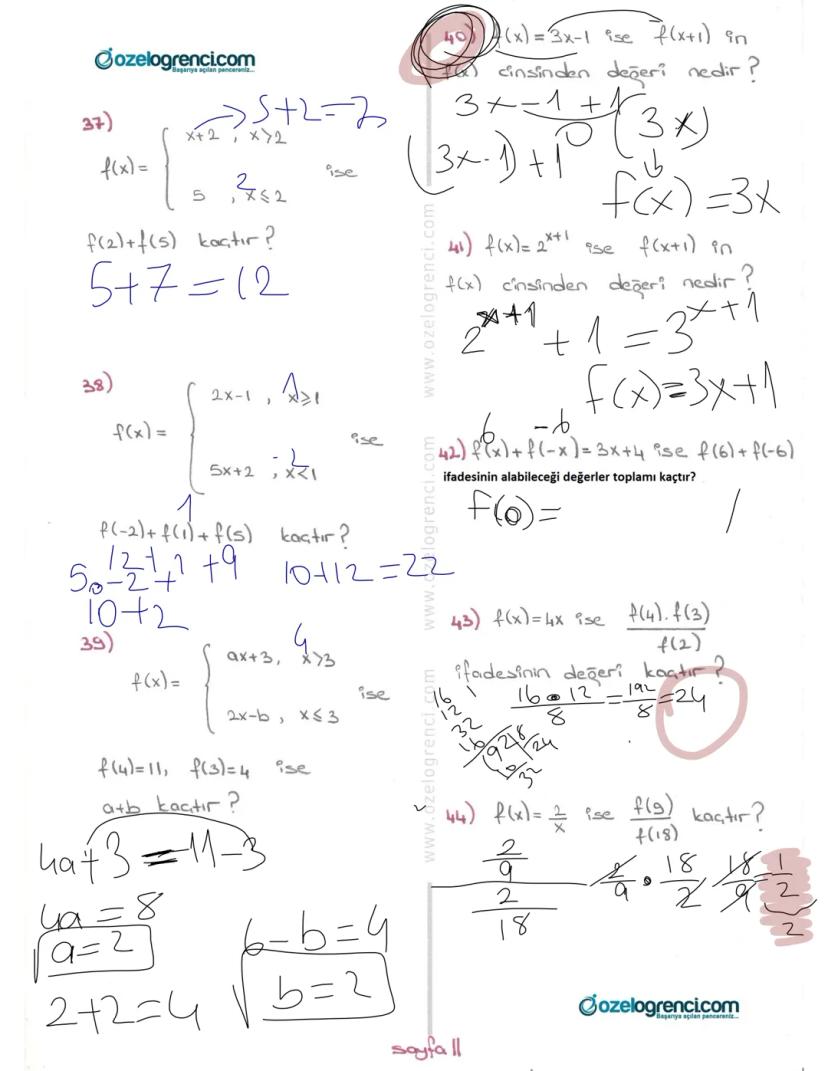 özelogrenci.com
Başarıya açılan pencereniz...
37)
5+2=7
f(x)= { x+2 , x>2
2
5 , x≤2
ise
f(2)+f(5) kaçtır?
5+7=12
38)
1
f(x)= { 2x-1 , x≥1
-2
5x+2 , x<1
ise
1
f(-2)+f(1)+f(5) kaçtır?
12+1+9
5.-2+
10+12=22
10+2
39)
4
f(x)= { ax+3, x>3
2x-b , x≤3
ise
f(4)=11, f(3)=4 ise
a+b kaçtır?
4a+3=11-3
4a=8
a=2
6-b=4
b=2
2+2=4
40) f(x)=3x-1 ise f(x+1) in
f(x) cinsinden değeri nedir?
3x-1+1
(3x)
(3x-1)+1
f(x)=3x
41) f(x)=2^x+1 ise f(x+1) in
f(x) cinsinden değeri nedir?
2^x+1 + 1 = 3^x+1
f(x)=3x+1
6 -6
42) f(x)+f(-x)=3x+4 ise f(6)+f(-6)
ifadesinin alabileceği değerler toplamı kaçtır?
f(0)=
43) f(x)=4x ise f(4).f(3)/f(2)
ifadesinin değeri kaçtır?
16.12/8=192/8=24
16
12
32
16
24
32
44) f(x)=2/x ise f(9)/f(18) kaçtır?
2/9
2/18
2/9 . 18/2
18/9=1/2
2
www.ozelogrenci.com
www.ozelogrenci.com
www.ozelogrenci.com
özelogrenci.com
Başarıya açılan pencereniz...
sayfa 11